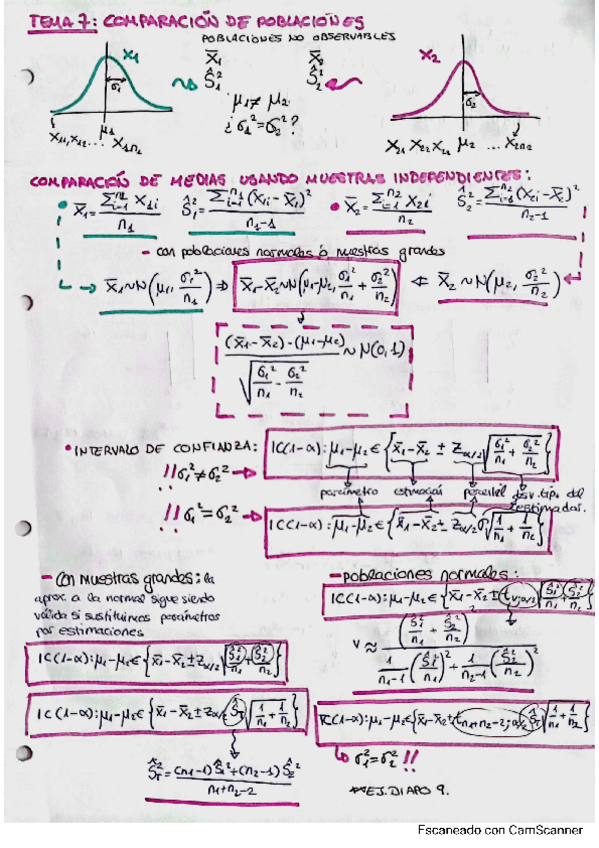 TEMA 7: COMPARACIÓN DE POBLACIONES
POBLACIONES NO OBSERVABLES
X₁ σ₁ X̄₁ Ŝ₁² X̄₂ Ŝ₂² X₂ σ₂
μ₁≠μ₂
¿σ₁²=σ₂²?
μ₁ μ₂
X₁₁, X₁₂ ... X₁n₁ X₂₁ X₂₂ X₂₃ ... X₂n₂
COMPARACIÓN DE MEDIAS USANDO MUESTRAS INDEPENDIENTES:
• X̄₁ = Σᵢ₌₁ⁿ¹ X₁ᵢ / n₁ Ŝ₁² = Σᵢ₌₁ⁿ¹ (X₁ᵢ - X̄₁)² / n₁-1 • X̄₂ = Σᵢ₌₁ⁿ² X₂ᵢ / n₂ Ŝ₂² = Σᵢ₌₁ⁿ² (Xᵢ - X̄₂)² / n₂-1
- con poblaciones normales ó muestras grandes
X̄₁ ~ N(μ₁, σ₁²/n₁) ⇒ X̄₁-X̄₂ ~ N(μ₁-μ₂, σ₁²/n₁ + σ₂²/n₂) ⇐ X̄₂ ~ N(μ₂, σ₂²/n₂)
(X̄₁-X̄₂)-(μ₁-μ₂) / √(σ₁²/n₁ - σ₂²/n₂) ~ N(0,1)
• INTERVALO DE CONFIANZA: IC(1-α): μ₁-μ₂ ∈ {x̄₁-x̄₂ ± Z_α/2 √(σ₁²/n₁ + σ₂²/n₂)}
!! σ₁² ≠ σ₂² →
parámetro
!! σ₁² = σ₂² → IC(1-α): μ₁-μ₂ ∈ {x̄₁-x̄₂ ± Z_α/2 σ √(1/n₁ + 1/n₂)}
- Con muestras grandes: la
aprox. a la normal sigue siendo
válida si sustituimos parámetros
por estimaciones
IC(1-α): μ₁-μ₂ ∈ {x̄₁-x̄₂ ± Z_α/2 √(Ŝ₁²/n₁ + Ŝ₂²/n₂)}
IC(1-α): μ₁-μ₂ ∈ {x̄₁-x̄₂ ± Z_α/2 Ŝ_T √(1/n₁ + 1/n₂)}
Ŝ_T² = (n₁-1)Ŝ₁² + (n₂-1)Ŝ₂² / n₁+n₂-2
- poblaciones normales:
IC(1-α): μ₁-μ₂ ∈ {x̄₁-x̄₂ ± t_v;α/2 √(Ŝ₁²/n₁ + Ŝ₂²/n₂)}
v ≈ (Ŝ₁²/n₁ + Ŝ₂²/n₂)² / 1/n₁-1 (Ŝ₁²/n₁)² + 1/n₂-1 (Ŝ₂²/n₂)²
IC(1-α): μ₁-μ₂ ∈ {x̄₁-x̄₂ ± t_n₁+n₂-2;α/2 Ŝ_T √(1/n₁ + 1/n₂)}
σ₁²=σ₂² !!
*EJ. DIAPO 9.
Escaneado con CamScanner